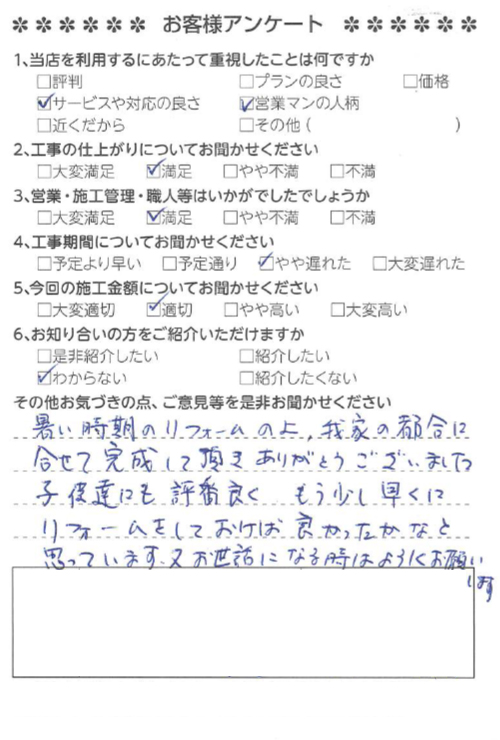 ✽✽✽✽✽✽ お客様アンケート ✽✽✽✽✽✽
1、当店を利用するにあたって重視したことは何ですか
□評判 □プランの良さ □価格
☑サービスや対応の良さ ☑営業マンの人柄
□近くだから □その他( )
2、工事の仕上がりについてお聞かせください
□大変満足 ☑満足 □やや不満 □不満
3、営業・施工管理・職人等はいかがでしたでしょうか
□大変満足 ☑満足 □やや不満 □不満
4、工事期間についてお聞かせください
□予定より早い □予定通り ☑やや遅れた □大変遅れた
5、今回の施工金額についてお聞かせください
□大変適切 ☑適切 □やや高い □大変高い
6、お知り合いの方をご紹介いただけますか
□是非紹介したい □紹介したい
☑わからない □紹介したくない
その他お気づきの点、ご意見等を是非お聞かせください
暑い時期のリフォームの上、我家の都合に
合せて完成して頂きありがとうございました
子供達にも評番良く もう少し早くに
リフォームをしておけば良かったかなと
思っています、又お世話になる時はよろしくお願い
します